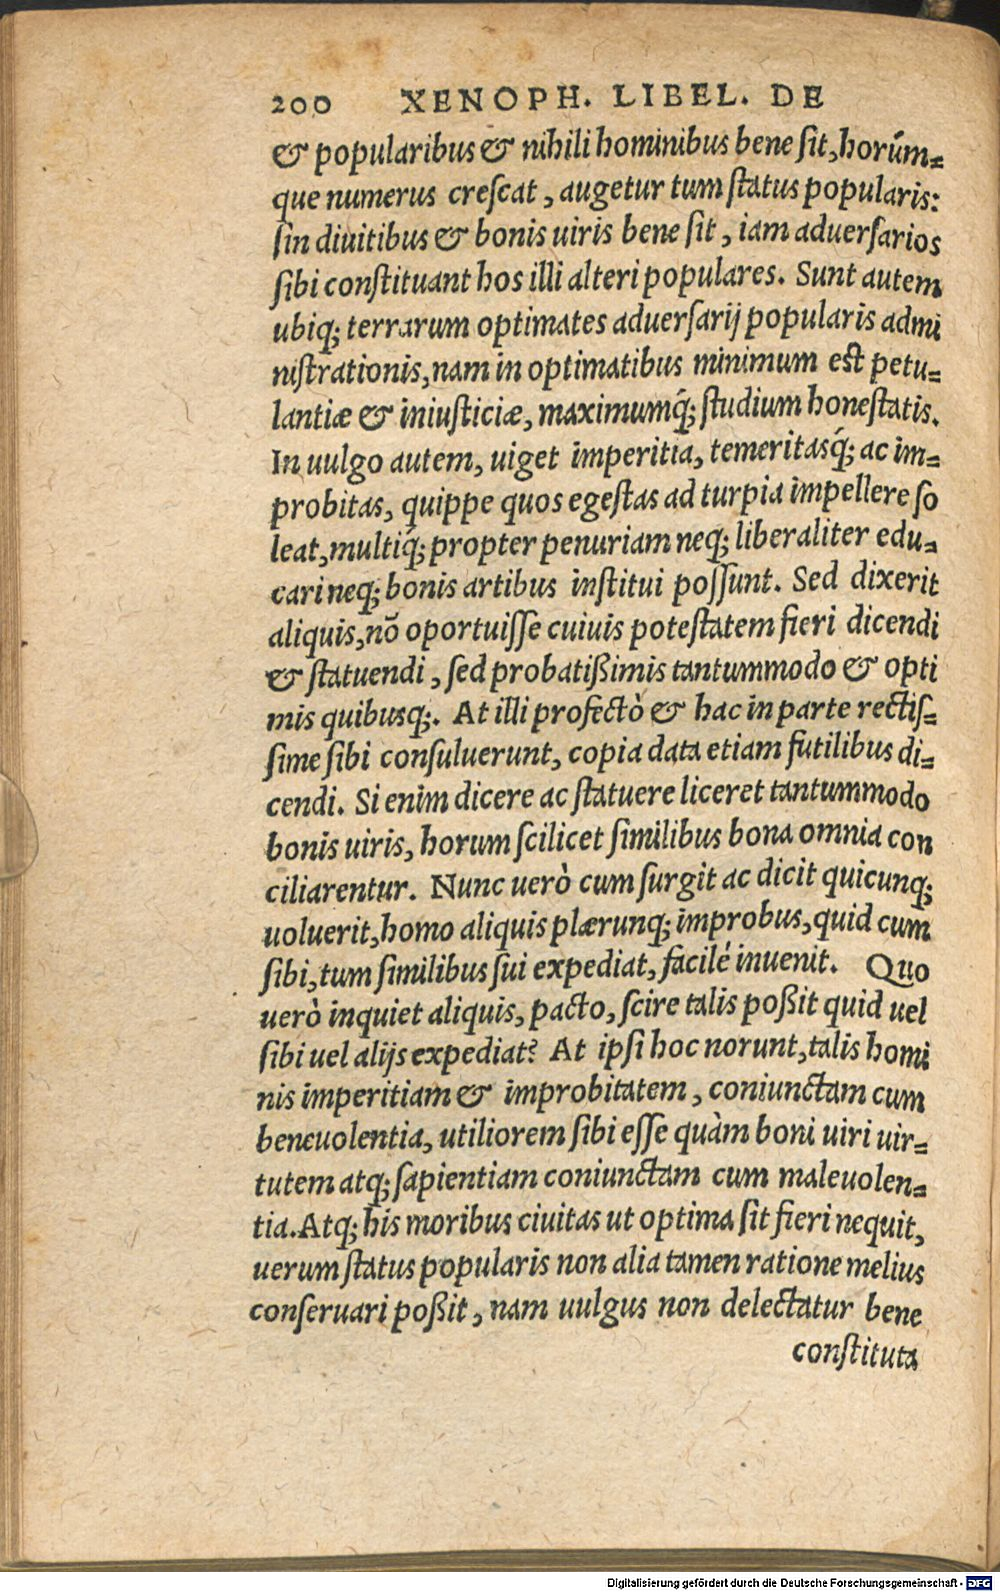 200 XENOPH. LIBEL. DE
& popularibus & nihili hominibus bene ſit, horúm⸗
que numerus creſcat, augetur tum ſtatus popularis:
ſin diuitibus & bonis uiris bene ſit, iam aduerſarios
ſibi conſtituant hos illi alteri populares. Sunt autem
ubiq; terrarum optimates aduerſarij popularis admi
niſtrationis, nam in optimatibus minimum eſt petu⸗
lantiæ & iniuſticiæ, maximumq́; ſtudium honeſtatis.
In uulgo autem, uiget imperitia, temeritasq́; ac im⸗
probitas, quippe quos egeſtas ad turpia impellere ſo
leat, multiq́; propter penuriam neq; liberaliter edu⸗
cari neq; bonis artibus inſtitui poſſunt. Sed dixerit
aliquis, nō oportuiſſe cuiuis poteſtatem fieri dicendi
& ſtatuendi, ſed probatißimis tantummodo & opti
mis quibusq;. At illi profectò & hac in parte rectiſ⸗
ſime ſibi conſuluerunt, copia data etiam futilibus di⸗
cendi. Si enim dicere ac ſtatuere liceret tantummodo
bonis uiris, horum ſcilicet ſimilibus bona omnia con
ciliarentur. Nunc uerò cum ſurgit ac dicit quicunq;
uoluerit, homo aliquis plærunq; improbus, quid cum
ſibi, tum ſimilibus ſui expediat, facilé inuenit. Quo
uerò inquiet aliquis, pacto, ſcire talis poßit quid uel
ſibi uel alijs expediat? At ipſi hoc norunt, talis homi
nis imperitiam & improbitatem, coniunctam cum
beneuolentia, utiliorem ſibi eſſe quàm boni uiri uir⸗
tutem atq; ſapientiam coniunctam cum maleuolen⸗
tia. Atq; his moribus ciuitas ut optima ſit fieri nequit,
uerum ſtatus popularis non alia tamen ratione melius
conſeruari poßit, nam uulgus non delectatur bene
conſtituta
Digitalisierung gefördert durch die Deutsche Forschungsgemeinschaft - DFG